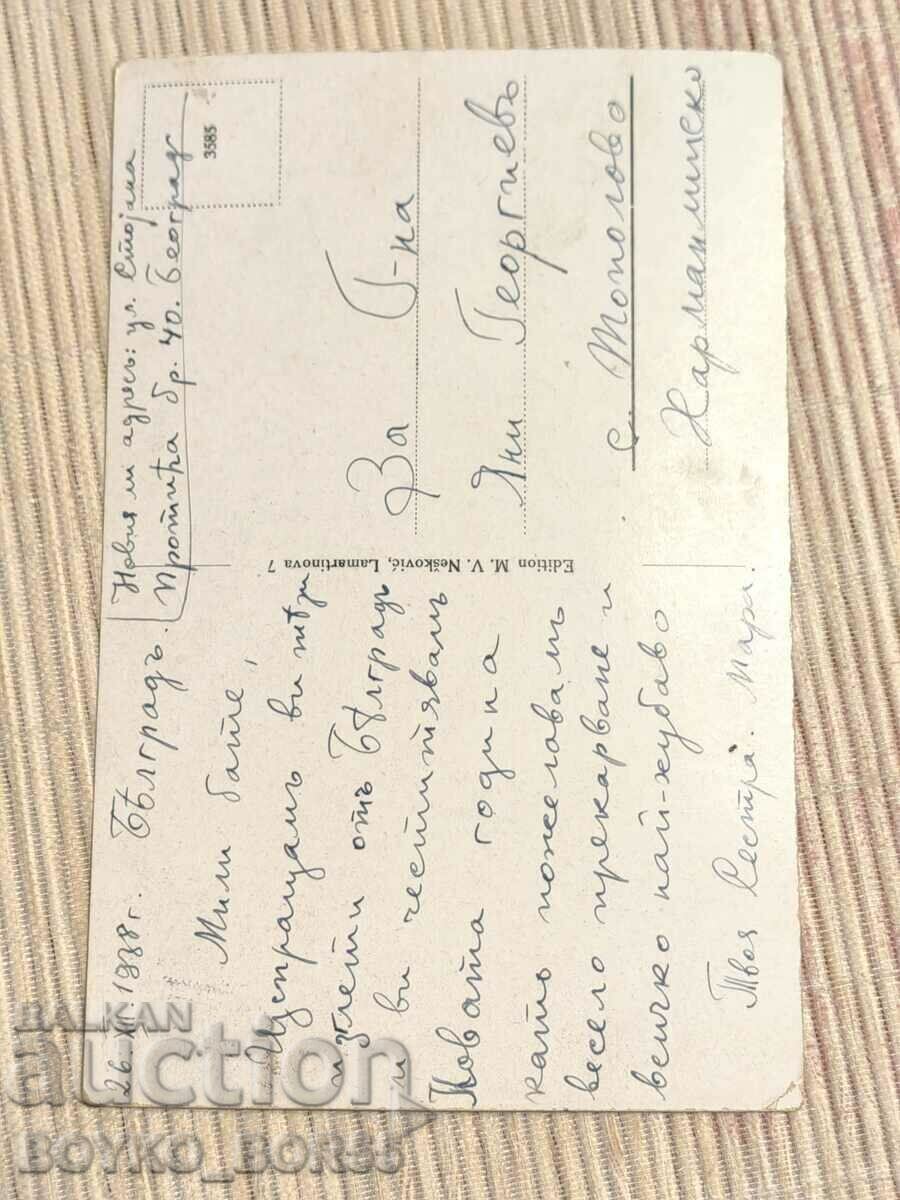 26.XII.1938г. Бѣлградъ.
Новия ми адресъ: ул. Стојана
Протића бр. 40. Београд
3585
Мили бате,
Изпращамъ ви тѣзи
изгледи отъ Бѣлградъ
и ви честитявамъ
Новата година
като пожелавамъ
весело прекарване и
всичко най-хубаво
Твоя Сестра. Мара.
Edition M. V. Nešković, Lamartinova 7
За Г-на
Яни Георгиевъ
с. Тополово
Харманлийско
BALKAN
auction
BOYKO_BORS5